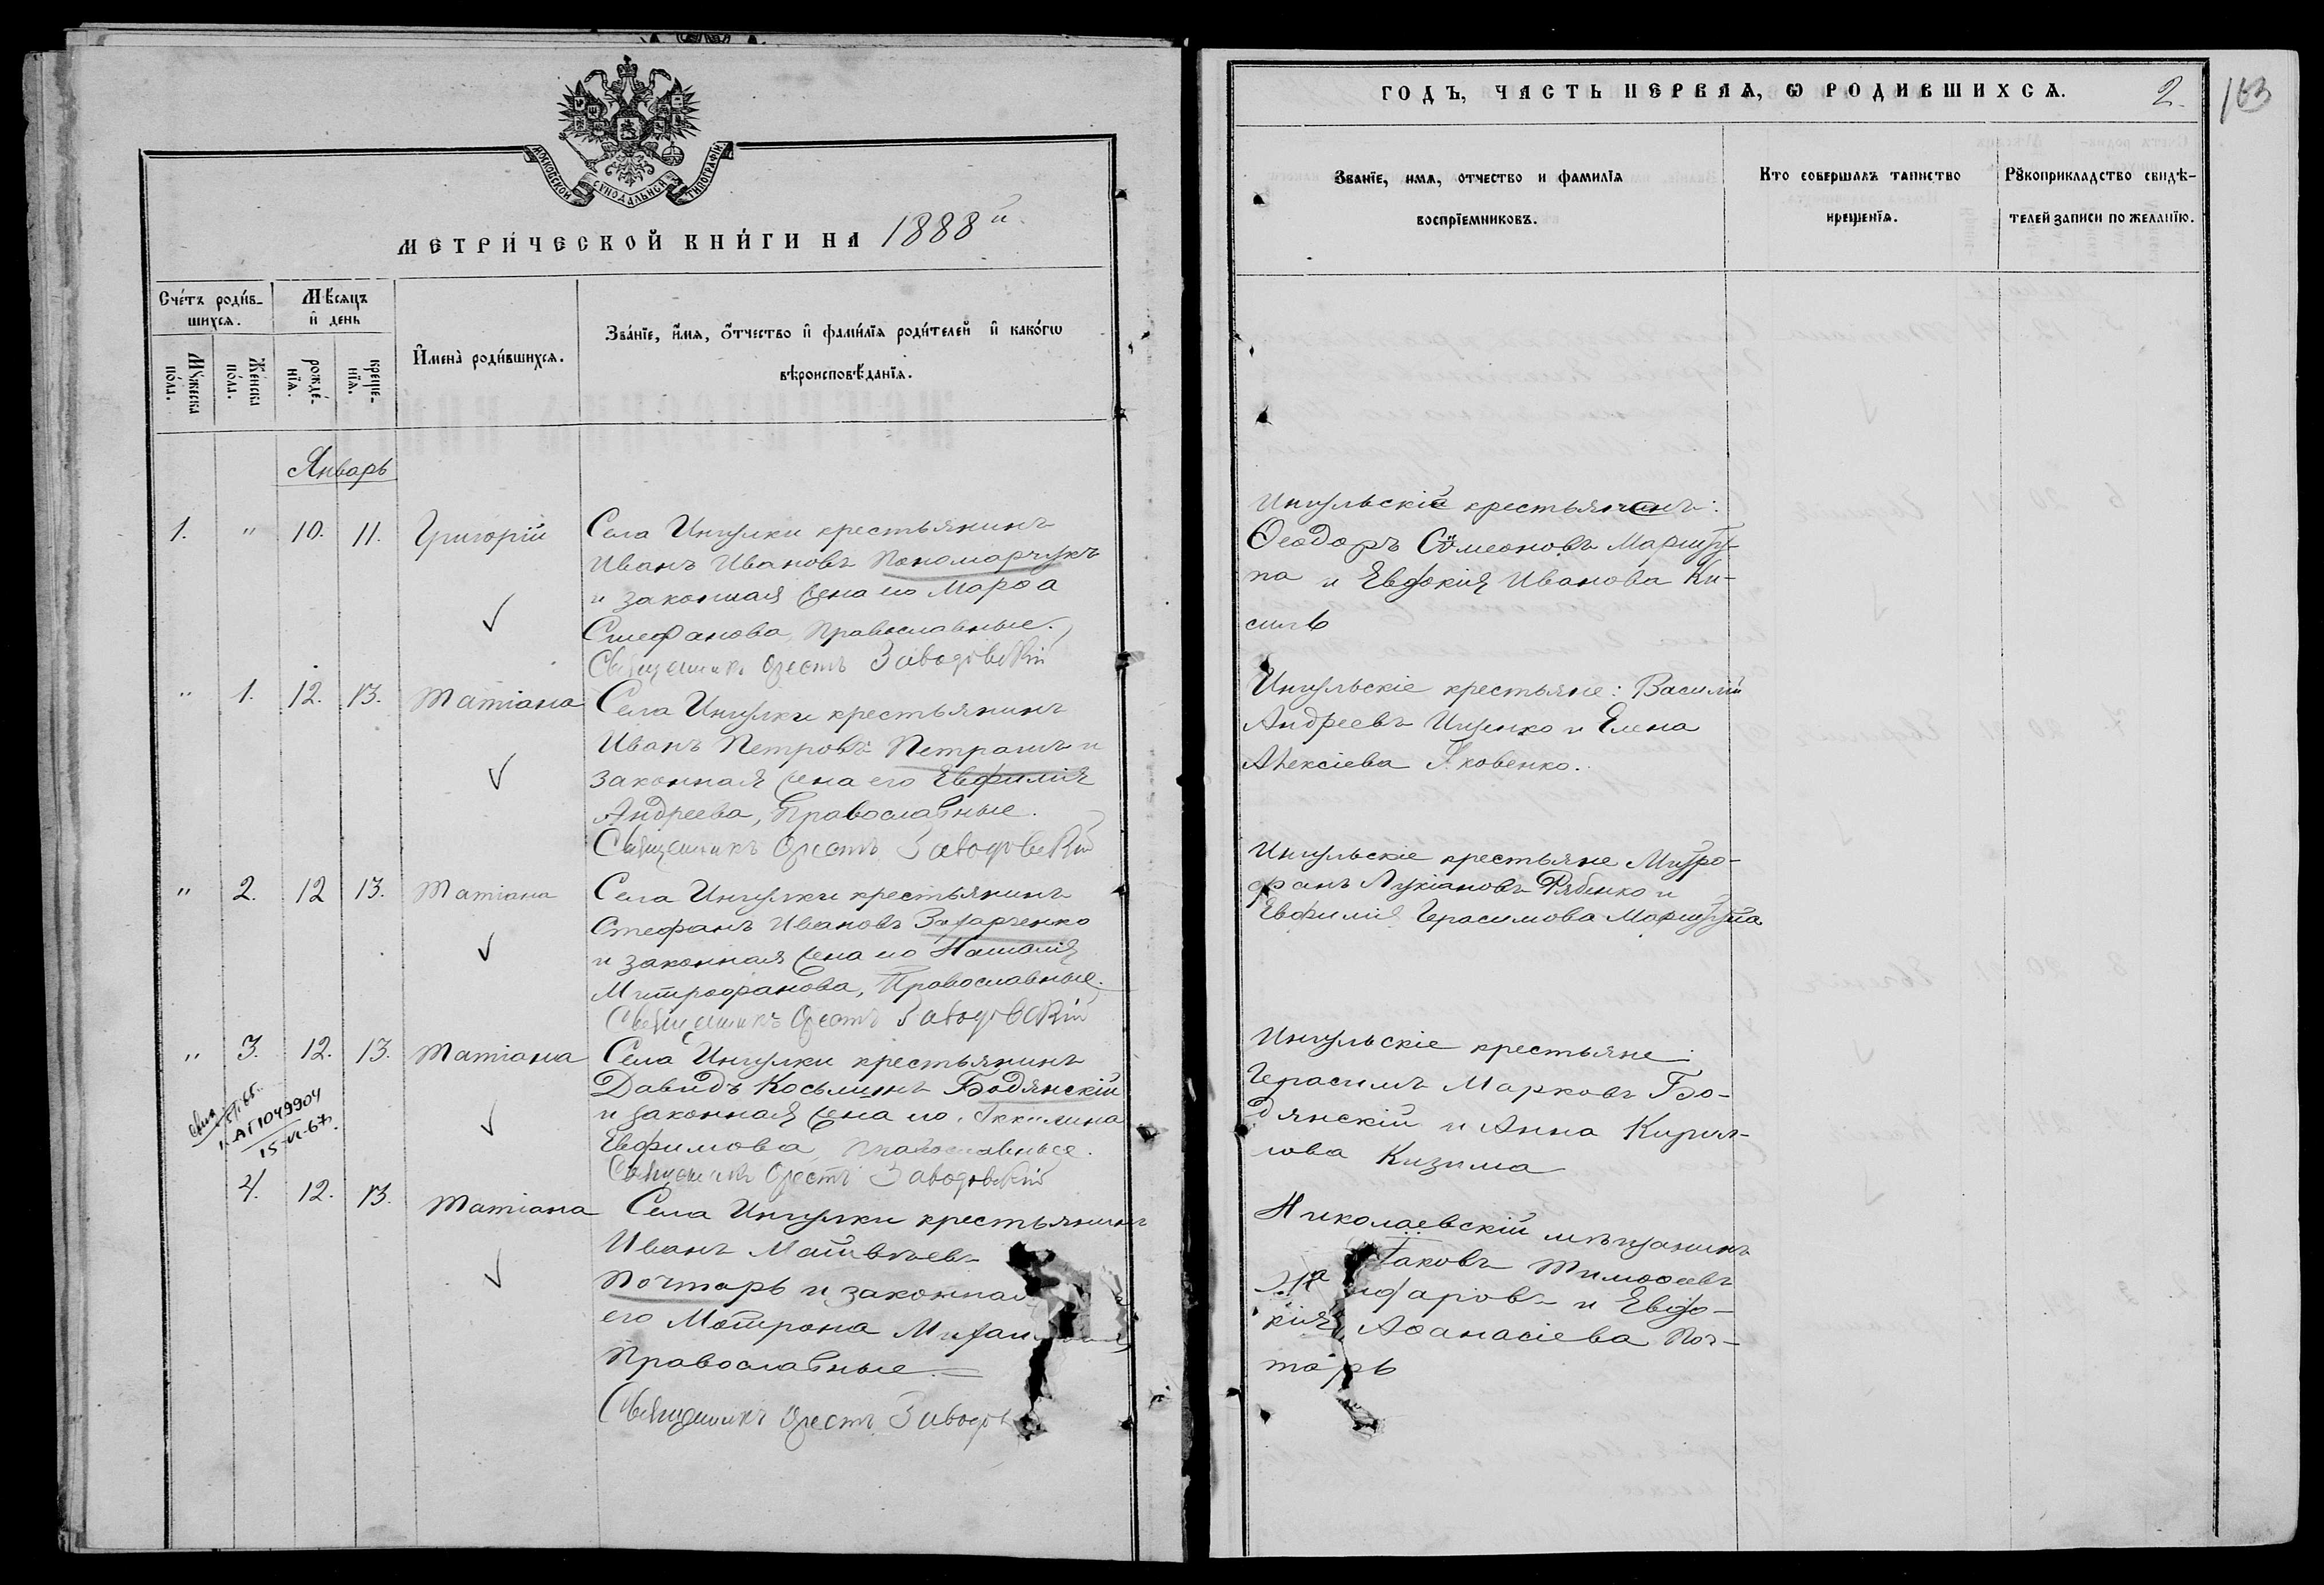 МОСКОВСКОЙ СѴНОДАЛЬНОЙ ТИПОГРАФІИ
МЕТРИ́ЧЕСКОЙ КНИ́ГИ НА 1888й
Сче́тъ роди́в-
шихсѧ.
Мѣ́сѧцъ
и҆ день
И҆мена̀ роди́вшихсѧ.
Зва́нїе, и҆́мѧ, ѻ҆́тчество и҆ фами́лїѧ роди́телей и҆ како́гѡ
вѣроисповѣ́данїѧ.
Мꙋ́жеска
по́ла.
Же́нска
по́ла.
рожде́-
нїѧ.
креще-
нїѧ.
Январь
1. " 10. 11. Григорій Села Ингулки крестьянинъ
Иванъ Ивановъ Пономарчукъ
и законная жена его Марѳа
Стефанова, Православные.
Священникъ Орестъ Заводовскій
" 1. 12. 13. Татіана Села Ингулки крестьянинъ
Иванъ Петровъ Петрашъ и
законная жена его Евфимія
Андреева, Православные.
Священникъ Орестъ Заводовскій
" 2. 12 13. Татіана Села Ингулки крестьянинъ
Стефанъ Ивановъ Захарченко
и законная жена его Наталія
Митрофанова, Православные.
Священникъ Орестъ Заводовскій
" 3. 12. 13. Татіана Села Ингулки крестьянинъ
Давидъ Косьминъ Бодянскій
и законная жена его Акилина
Евфимова, Православные.
Священникъ Орестъ Заводовскій
1-АГ 1049904
15-VI-67.
4. 12. 13. Татіана Села Ингулки крестьянинъ
Иванъ Матвѣевъ
Почтарь и законная
его Мотрона
Православные.
Священникъ Орестъ Заводов
ГОДЪ, ЧАСТЬ ПЕРВАѦ, Ѡ РОДИВШИХСѦ. 2. 163
Званїе, имѧ, отчество и фамилїѧ
воспрїемниковъ.
Кто совершалъ таинство
крещенїѧ.
Рꙋкоприкладство свидѣ-
телей записи по желанїю.
Ингульскіе крестьяне:
Ѳеодоръ Сѵмеоновъ Маршу-
па и Евдокія Иванова Ки-
силь
Ингульскіе крестьяне: Василій
Андреевъ Ищенко и Елена
Алексіева Яковенко.
Ингульскіе крестьяне Митро-
фанъ Лукіановъ Рябенко и
Евфимія Герасимова Маршупа
Ингульскіе крестьяне:
Герасимъ Марковъ Бо-
дянскій и Анна Кирил-
лова Кизима
Николаевскій мѣщанинъ
Іаковъ Тимоѳеевъ
и Евдо-
кія Аѳанасіева Поч-
тарь